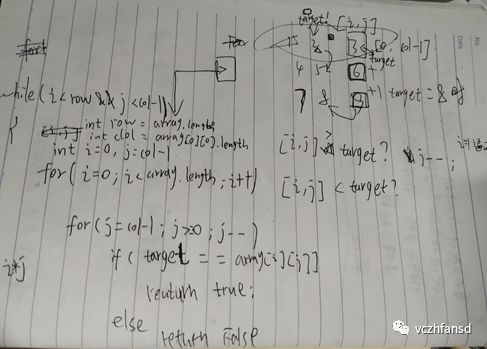 target!  [i,j]
1  2  3  [0, col-1]
target
4  5  6  +1
7  8  9  +1  target = 8
while(i<row && j<col-1)
{
int row = array.length
int clol = array[0][0].length
int i=0, j=col-1
[i,j] > target?  j--;
for(int i=0; i<array.length; i++)
[i,j] < target?
for(j=col-1; j>=0; j--)
i*j
if( target == array[i][j])
return true;
else
return False
vczhfansd